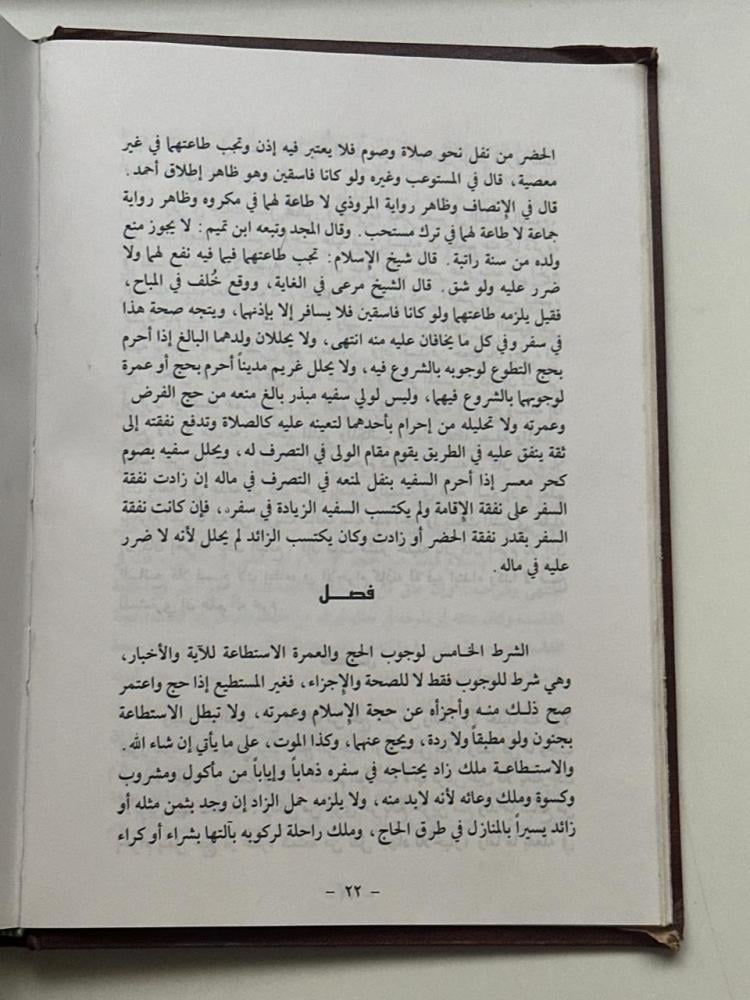 الحضر من نفل نحو صلاة وصوم فلا يعتبر فيه إذن وتجب طاعتهما في غير
معصية، قال في المستوعب وغيره ولو كانا فاسقين وهو ظاهر إطلاق أحمد.
قال في الإنصاف وظاهر رواية المروذي لا طاعة لهما في مكروه وظاهر رواية
جماعة لا طاعة لهما في ترك مستحب. وقال المجد وتبعه ابن تميم: لا يجوز منع
ولده من سنة راتبة. قال شيخ الإسلام: تجب طاعتهما فيما فيه نفع لهما ولا
ضرر عليه ولو شق. قال الشيخ مرعى في الغاية، ووقع خُلف في المباح،
فقيل يلزمه طاعتهما ولو كانا فاسقين فلا يسافر إلا بإذنهما، ويتجه صحة هذا
في سفر وفي كل ما يخافان عليه منه انتهى، ولا يحللان ولدهما البالغ إذا أحرم
بحج التطوع لوجوبه بالشروع فيه، ولا يحلل غريم مديناً أحرم بحج أو عمرة
لوجوبهما بالشروع فيهما، وليس لولي سفيه مبذر بالغ منعه من حج الفرض
وعمرته ولا تحليله من إحرام بأحدهما لتعينه عليه كالصلاة وتدفع نفقته إلى
ثقة ينفق عليه في الطريق يقوم مقام الولى في التصرف له، ويحلل سفيه بصوم
كحر معسر إذا أحرم السفيه بنفل لمنعه في التصرف في ماله إن زادت نفقة
السفر على نفقة الإقامة ولم يكتسب السفيه الزيادة في سفره، فإن كانت نفقة
السفر بقدر نفقة الحضر أو زادت وكان يكتسب الزائد لم يحلل لأنه لا ضرر
عليه في ماله.
فصــل
الشرط الخامس لوجوب الحج والعمرة الاستطاعة للآية والأخبار،
وهي شرط للوجوب فقط لا للصحة والإجزاء، فغير المستطيع إذا حج واعتمر
صح ذلك منه وأجزأه عن حجة الإسلام وعمرته، ولا تبطل الاستطاعة
بجنون ولو مطبقاً ولا ردة، ويحج عنهما، وكذا الموت، على ما يأتي إن شاء الله.
والاستطاعة ملك زاد يحتاجه في سفره ذهاباً وإياباً من مأكول ومشروب
وكسوة وملك وعائه لأنه لابد منه، ولا يلزمه حمل الزاد إن وجد بثمن مثله أو
زائد يسيراً بالمنازل في طرق الحاج، وملك راحلة لركوبه بآلتها بشراء أو كراء
- ٢٢ -